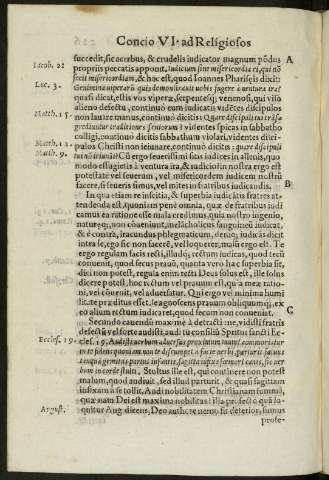 Concio VI. ad Religiosos
succedit, sic acerbus, & crudelis iudicator magnum põdus
A
propriis peccatis apponit. Iudicium sine misericordia ei, qui nõ
Iacob. 2:
fecit misericordiam, & hoc est, quod Ioannes Phariseis dixit:
Luc. 3.
Genimina viperarũ quis demonstrauit vobis fugere à ventura ira?
quasi dicat, estis vos vipera, serpentesq; venenosi, qui viso
alieno defectu, continuò eum iudicatis videntes discipulos
non lauare manus, continuò dicitis: Quare discipuli tui trãs
Matth. 15
grediuntur traditiones seniorum? videntes spicas in sabbatho
colligi, continuò dicitis sabbathum violari, videntes disci-
Matth. 12
pulos Christi non ieiunare, continuò dicitis: quare discipuli
Matth. 9.
tui nõ ieiunãt? Cũ ergo seuerissimi sitis iudices in alienis, quo
modo est fugietis à ventura ira, & iudicio? in nostra ergo est
potestate vel seuerum, vel misericordem iudicem nobis
facere, si seueris simus, vel mites in fratribus iudicandis.
B
In qua etiam re inscitia, & superbia iudicãtis fratres at-
tendenda est, quoniam penè omnia, quæ de fratribus iudi
camus ea ratione esse mala credimus, quia nostro ingenio,
naturæq; non cõueniunt, melãcholicus sanguineũ iudicat,
& è contra, iracundus phlegmaticum, deniq; iudicãs dicit
intra se, ego sic non facerẽ, vel loquerer, malũ ergo est. Te
ergo regulam facis recti, illudq; rectum iudicas, quod tecũ
conuenit, quod secus prauũ, quanta vero hæc superbia sit,
dici non potest, regula enim recti Deus solus est, ille solus
dicere potest, hoc rectum vel prauum est, quia meæ ratio-
ni, vel cõuenit, vel aduersatur. Qui ergo vel minima humi
litate præditus est. se agnoscens prauum obliquumq;, ex
C
eo alium rectum iudicaret, quod secum non conuenit.
Secundo cauendũ maximè à detractione, vidisti fratris
defectũ vel forte audisti: audi tu consiliũ Spiritus sancti Ec-
Eccles. 19
cles. 19. Audisti verbum aduersus proximum tuum? commoriatur
in te fidens quoniam non te disrumpet. à facie verbi parturit fatuus
tanquã gemitus partus infantis, sagitta infixa femori canis, sic ver
bum in corde stulti. Stoltus ille est, qui continere non potest
malum, quod audiuit, sed illud parturit, & quasi sagittam
infixam à se tollit. Audi nobilitatem Christianam summã,
quæ nam Dei est maxima nobilitas? illa profectò quã lo-
August.
quitur Aug. dicens, Deo auctore nemo fit deterior, sumus
profe-